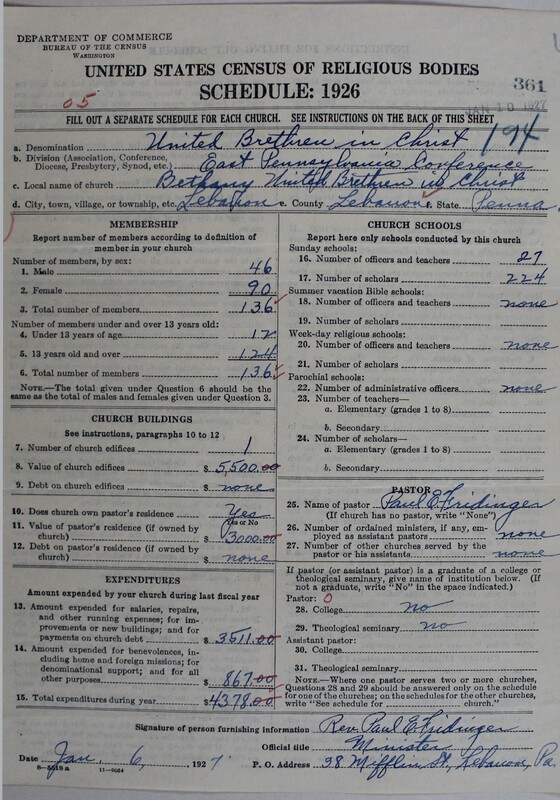 DEPARTMENT OF COMMERCE
BUREAU OF THE CENSUS
WASHINGTON
UNITED STATES CENSUS OF RELIGIOUS BODIES
SCHEDULE: 1926
361
JAN 10 1927
05
FILL OUT A SEPARATE SCHEDULE FOR EACH CHURCH. SEE INSTRUCTIONS ON THE BACK OF THIS SHEET
194
a. Denomination United Brethren in Christ
b. Division (Association, Conference,
Diocese, Presbytery, Synod, etc.) East Pennsylvania Conference
c. Local name of church Bethany United Brethren in Christ
d. City, town, village, or township, etc. Lebanon e. County Lebanon f. State Penna.
MEMBERSHIP
Report number of members according to definition of
member in your church
Number of members, by sex:
1. Male 46
2. Female 90
3. Total number of members 136
Number of members under and over 13 years old:
4. Under 13 years of age 12
5. 13 years old and over 124
6. Total number of members 136
NOTE.—The total given under Question 6 should be
the same as the total of males and females given under Question 3.
CHURCH BUILDINGS
See instructions, paragraphs 10 to 12
7. Number of church edifices 1
8. Value of church edifices $5,500.00
9. Debt on church edifices $ none
10. Does church own pastor's residence? Yes
Yes or No
11. Value of pastor's residence (if owned by
church) $3000.00
12. Debt on pastor's residence (if owned by
church) $ none
EXPENDITURES
Amount expended by your church during last fiscal year
13. Amount expended for salaries, repairs,
and other running expenses; for im-
provements or new buildings; and for
payments on church debt $3511.00
14. Amount expended for benevolences, in-
cluding home and foreign missions; for
denominational support; and for all
other purposes $867.00
15. Total expenditures during year $4378.00
CHURCH SCHOOLS
Report here only schools conducted by this church
Sunday schools:
16. Number of officers and teachers 27
17. Number of scholars 224
Summer vacation Bible schools:
18. Number of officers and teachers none
19. Number of scholars
Week-day religious schools:
20. Number of officers and teachers none
21. Number of scholars
Parochial schools:
22. Number of administrative officers none
23. Number of teachers—
a. Elementary (grades 1 to 8)
b. Secondary
24. Number of scholars—
a. Elementary (grades 1 to 8)
b. Secondary
PASTOR
25. Name of pastor Paul E. Fridinger
(If church has no pastor, write "None")
26. Number of ordained ministers, if any, em-
ployed as assistant pastors none
27. Number of other churches served by the
pastor or his assistants none
If pastor (or assistant pastor) is a graduate of a college or
theological seminary, give name of institution below. (If
not a graduate, write "No" in the space indicated.)
Pastor: 0
28. College no
29. Theological seminary no
Assistant pastor:
30. College
31. Theological seminary
NOTE.—Where one pastor serves two or more churches,
Questions 28 and 29 should be answered only on the schedule
for one of the churches; on the schedules for the other churches,
write "See schedule for church."
Signature of person furnishing information Rev. Paul E. Fridinger
Official title Minister
Date Jan. 6, 1927. P. O. Address 98 Mifflin St., Lebanon, Pa.
8—5518a 11—9084